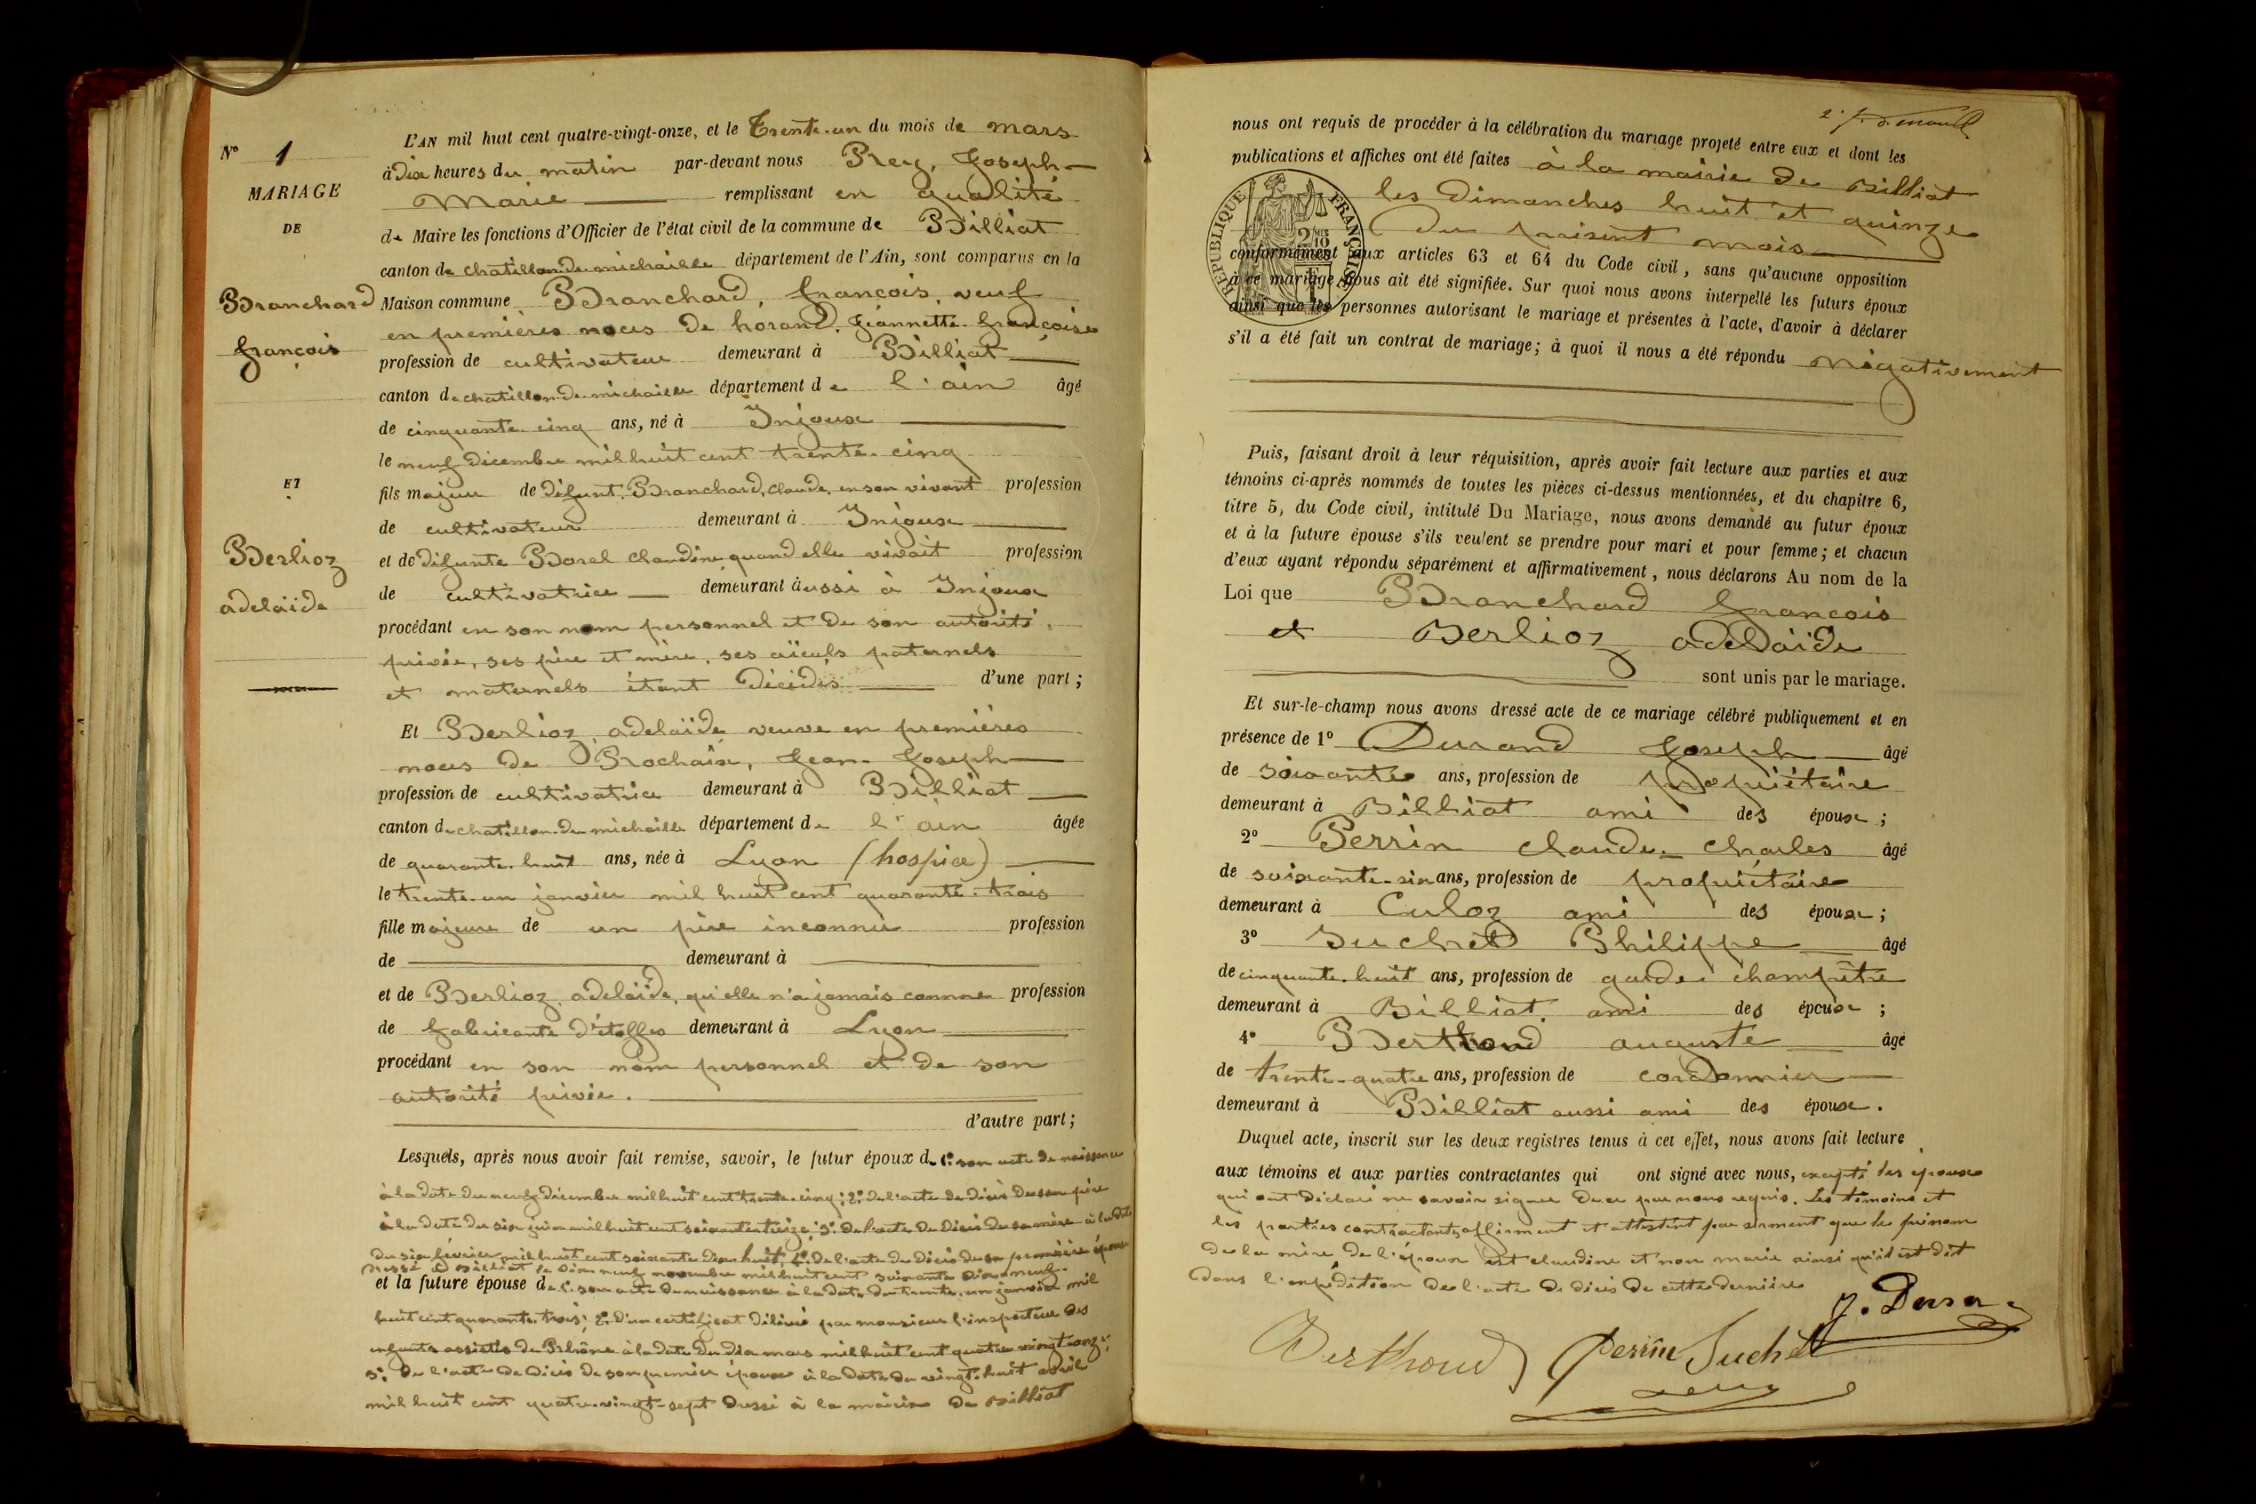 N° 1
MARIAGE
DE
Branchard
françois
ET
Berlioz
adelaïde
L'AN mil huit cent quatre-vingt-onze, et le Trente-un du mois de mars
à dix heures du matin par-devant nous Prey, Joseph
Marie remplissant en qualité
de Maire les fonctions d'Officier de l'état civil de la commune de Billiat
canton de chatillon de michaille département de l'Ain, sont comparus en la
Maison commune Branchard, françois, veuf
en premières noces de hérand, Jeannette françoise
profession de cultivateur demeurant à Billiat
canton de chatillon de michaille département de l'ain âgé
de cinquante cinq ans, né à Injoux
le neuf décembre mil huit cent trente cinq
fils majeur de défunt Branchard, claude, en son vivant profession
de cultivateur demeurant à Injoux
et de défunte Borel claudine, quand elle vivait profession
de cultivatrice demeurant aussi à Injoux
procédant en son nom personnel et de son autorité
privée, ses père et mère, ses aïeuls paternels
et maternels étant décédés d'une part ;
Et Berlioz, adelaïde veuve en premières
noces de Prochaix, Jean-Joseph
profession de cultivatrice demeurant à Billiat
canton de chatillon de michaille département de l'ain âgée
de quarante-huit ans, née à Lyon (hospice)
le trente-un janvier mil huit cent quarante-trois
fille majeure de un père inconnu profession
de demeurant à
et de Berlioz adelaïde, qu'elle n'a jamais connue profession
de fabricante d'étoffes demeurant à Lyon
procédant en son nom personnel et de son
autorité privée.
d'autre part ;
Lesquels, après nous avoir fait remise, savoir, le futur époux de 1° son acte de naissance
à la date du neuf décembre mil huit cent trente-cinq ; 2° de l'acte de décès de son père
à la date du six juin mil huit cent soixante treize ; 3° de l'acte de décès de sa mère à la date
du six février mil huit cent soixante dix-huit, 4° de l'acte de décès de sa première épouse
dressé à Billiat le dix-neuf novembre mil huit cent soixante dix-neuf
et la future épouse de 1° son acte de naissance à la date du trente-un janvier mil
huit cent quarante-trois ; 2° d'un certificat délivré par monsieur l'inspecteur des
enfants assistés du Rhône à la date du dix mars mil huit cent quatre vingt onze ;
3° de l'acte de décès de son premier époux à la date du vingt-huit avril
mil huit cent quatre-vingt-sept dressé à la mairie de Billiat
nous ont requis de procéder à la célébration du mariage projeté entre eux et dont les
publications et affiches ont été faites à la mairie de Billiat
les dimanches huit et quinze
du présent mois
conformément aux articles 63 et 64 du Code civil, sans qu'aucune opposition
à ce mariage nous ait été signifiée. Sur quoi nous avons interpellé les futurs époux
ainsi que les personnes autorisant le mariage et présentes à l'acte, d'avoir à déclarer
s'il a été fait un contrat de mariage ; à quoi il nous a été répondu négativement
RÉPUBLIQUE FRANÇAISE
Puis, faisant droit à leur réquisition, après avoir fait lecture aux parties et aux
témoins ci-après nommés de toutes les pièces ci-dessus mentionnées, et du chapitre 6,
titre 5, du Code civil, intitulé Du Mariage, nous avons demandé au futur époux
et à la future épouse s'ils veulent se prendre pour mari et pour femme ; et chacun
d'eux ayant répondu séparément et affirmativement, nous déclarons Au nom de la
Loi que Branchard françois
et Berlioz adelaïde
sont unis par le mariage.
Et sur-le-champ nous avons dressé acte de ce mariage célébré publiquement et en
présence de 1° Durand Joseph âgé
de soixante ans, profession de propriétaire
demeurant à Billiat ami des époux ;
2° Perrin claude-charles âgé
de soixante-six ans, profession de propriétaire
demeurant à Culoz ami des époux ;
3° Suchet Philippe âgé
de cinquante-huit ans, profession de garde champêtre
demeurant à Billiat, ami des époux ;
4° Berthoud auguste âgé
de trente-quatre ans, profession de cordonnier
demeurant à Billiat aussi ami des époux.
Duquel acte, inscrit sur les deux registres tenus à cet effet, nous avons fait lecture
aux témoins et aux parties contractantes qui ont signé avec nous, excepté les époux
qui ont déclaré ne savoir signer de ce par nous requis. Les témoins et
les parties contractantes affirment et attestent par serment que le prénom
de la mère de l'époux est claudine et non marie ainsi qu'il est dit
dans l'expédition de l'acte de décès de cette dernière
J. Duran
Berthoud Perrin Suchet